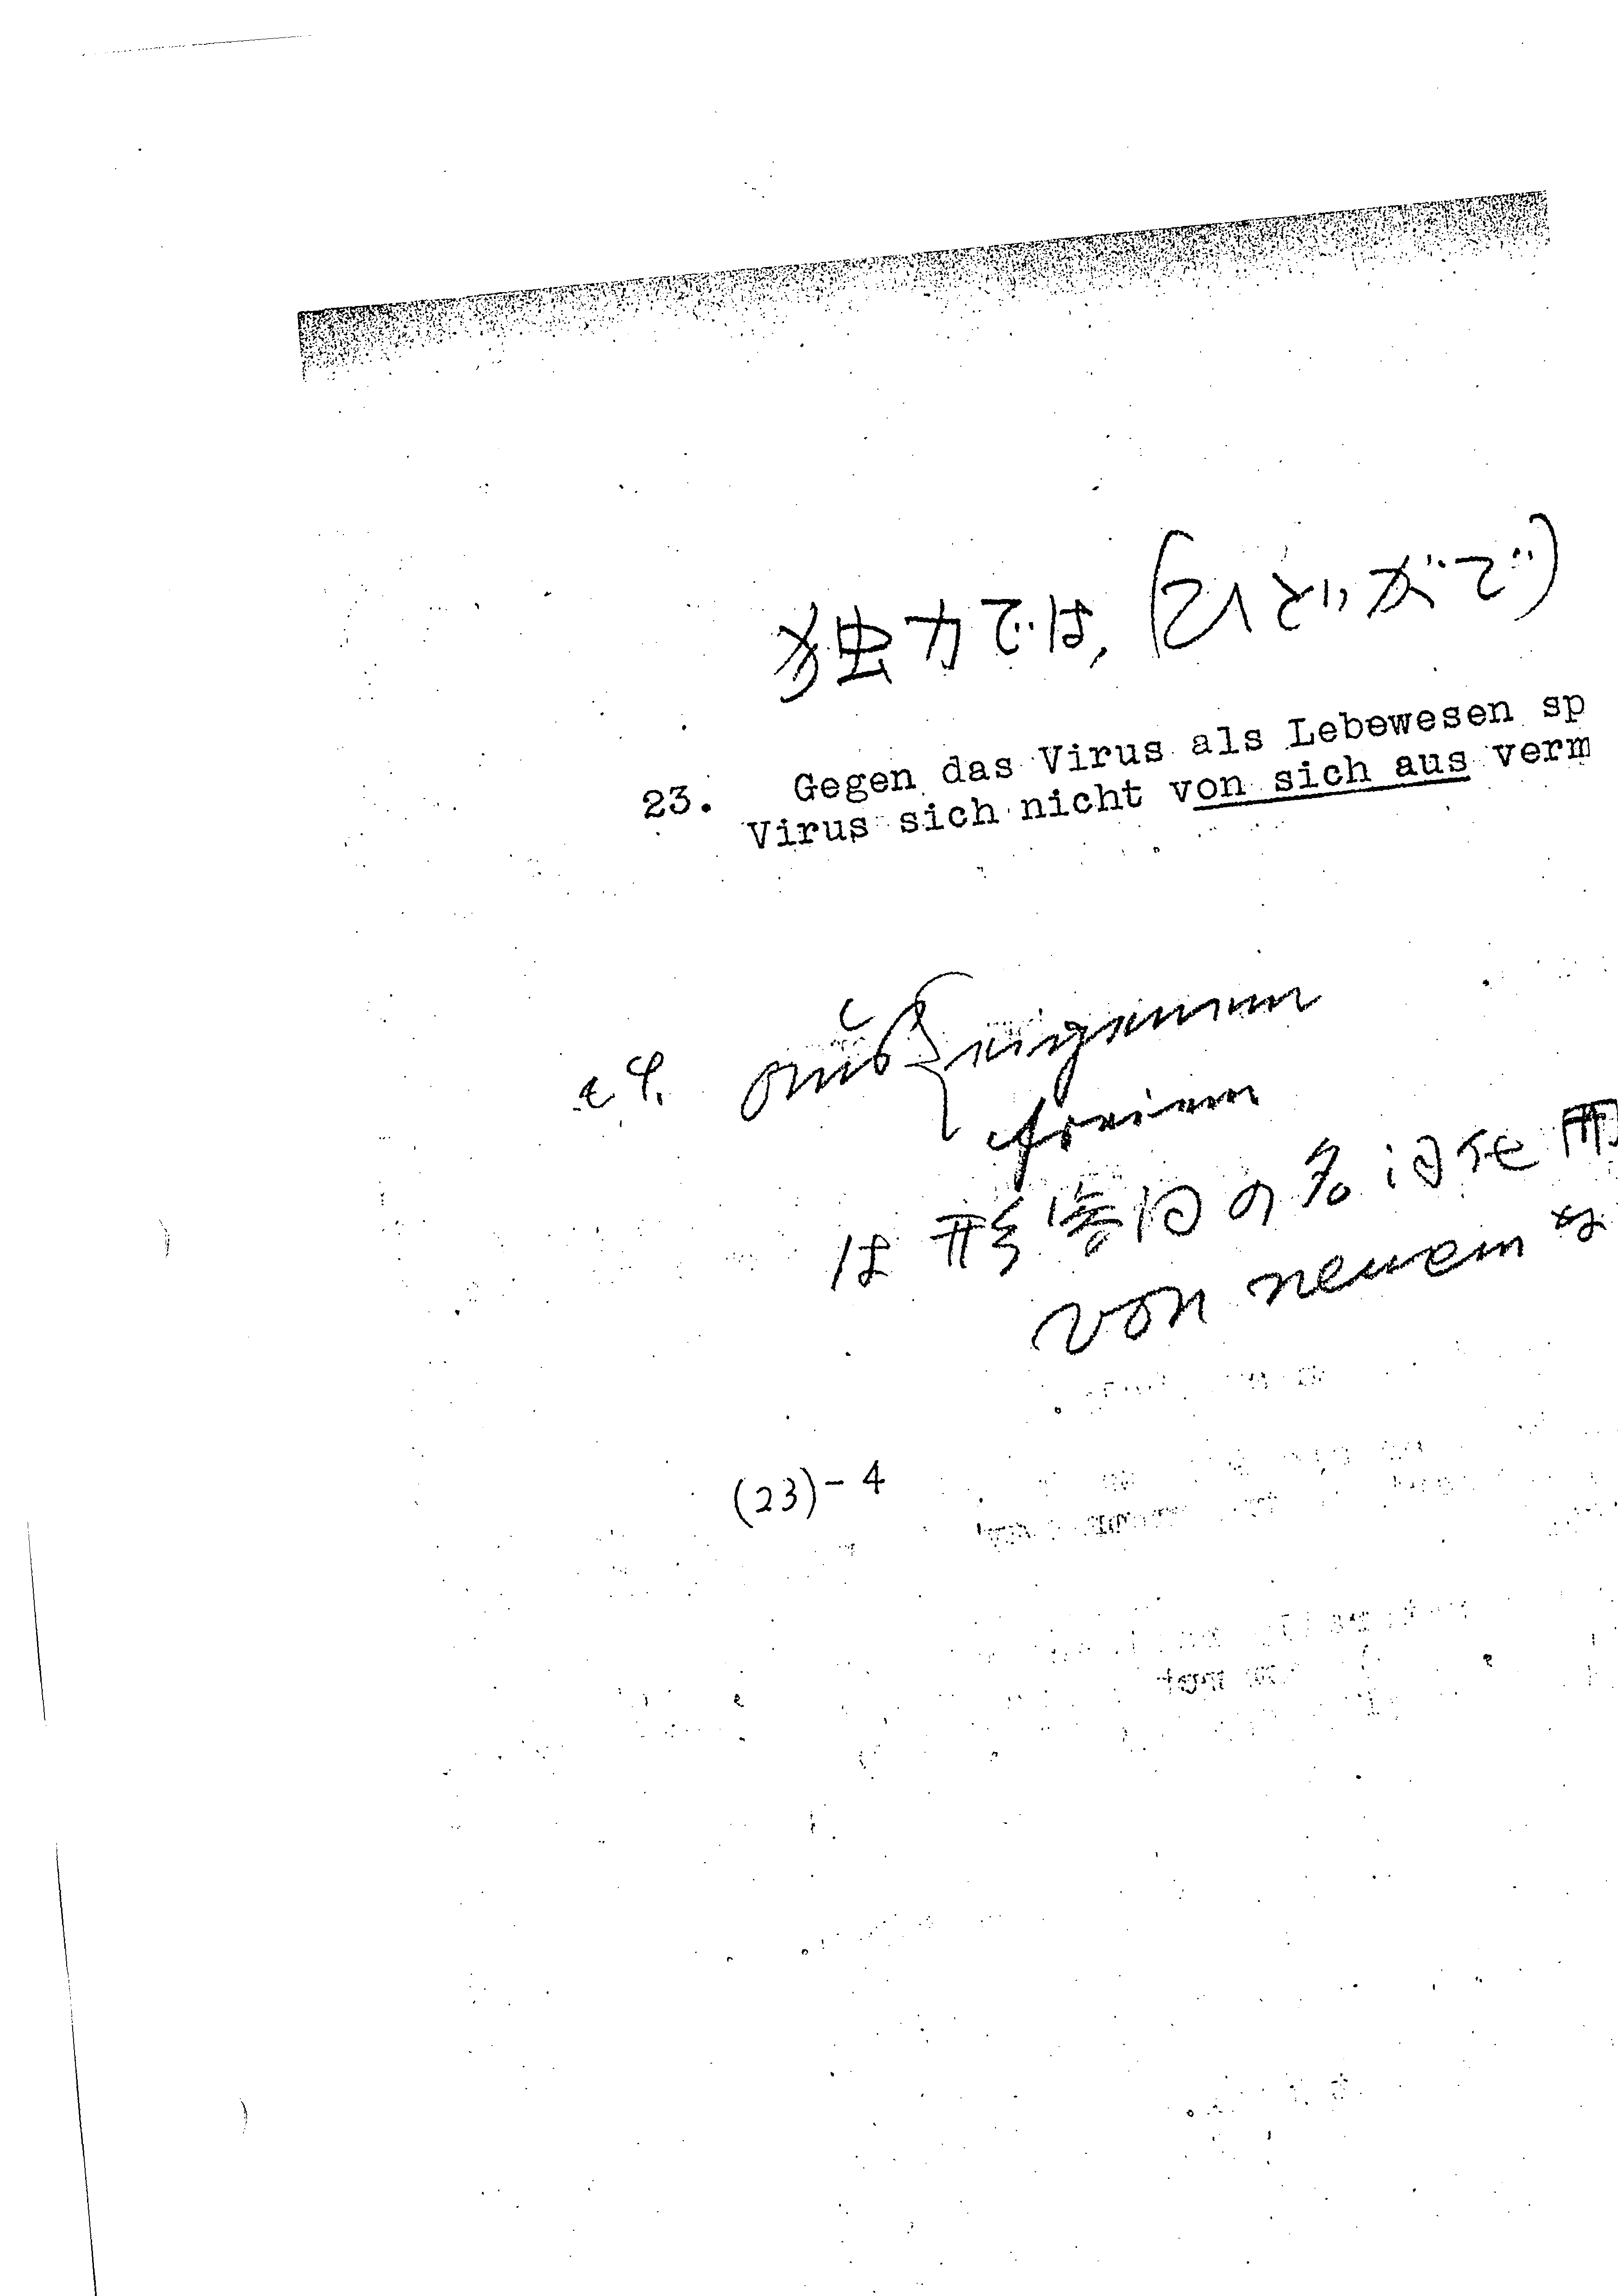 独力では, (ひとりがでで)
23. Gegen das Virus als Lebewesen sp
Virus sich nicht von sich aus verm
aus { eigenem
freiem
は 形容詞の名詞化用
von neuem
(23)-4